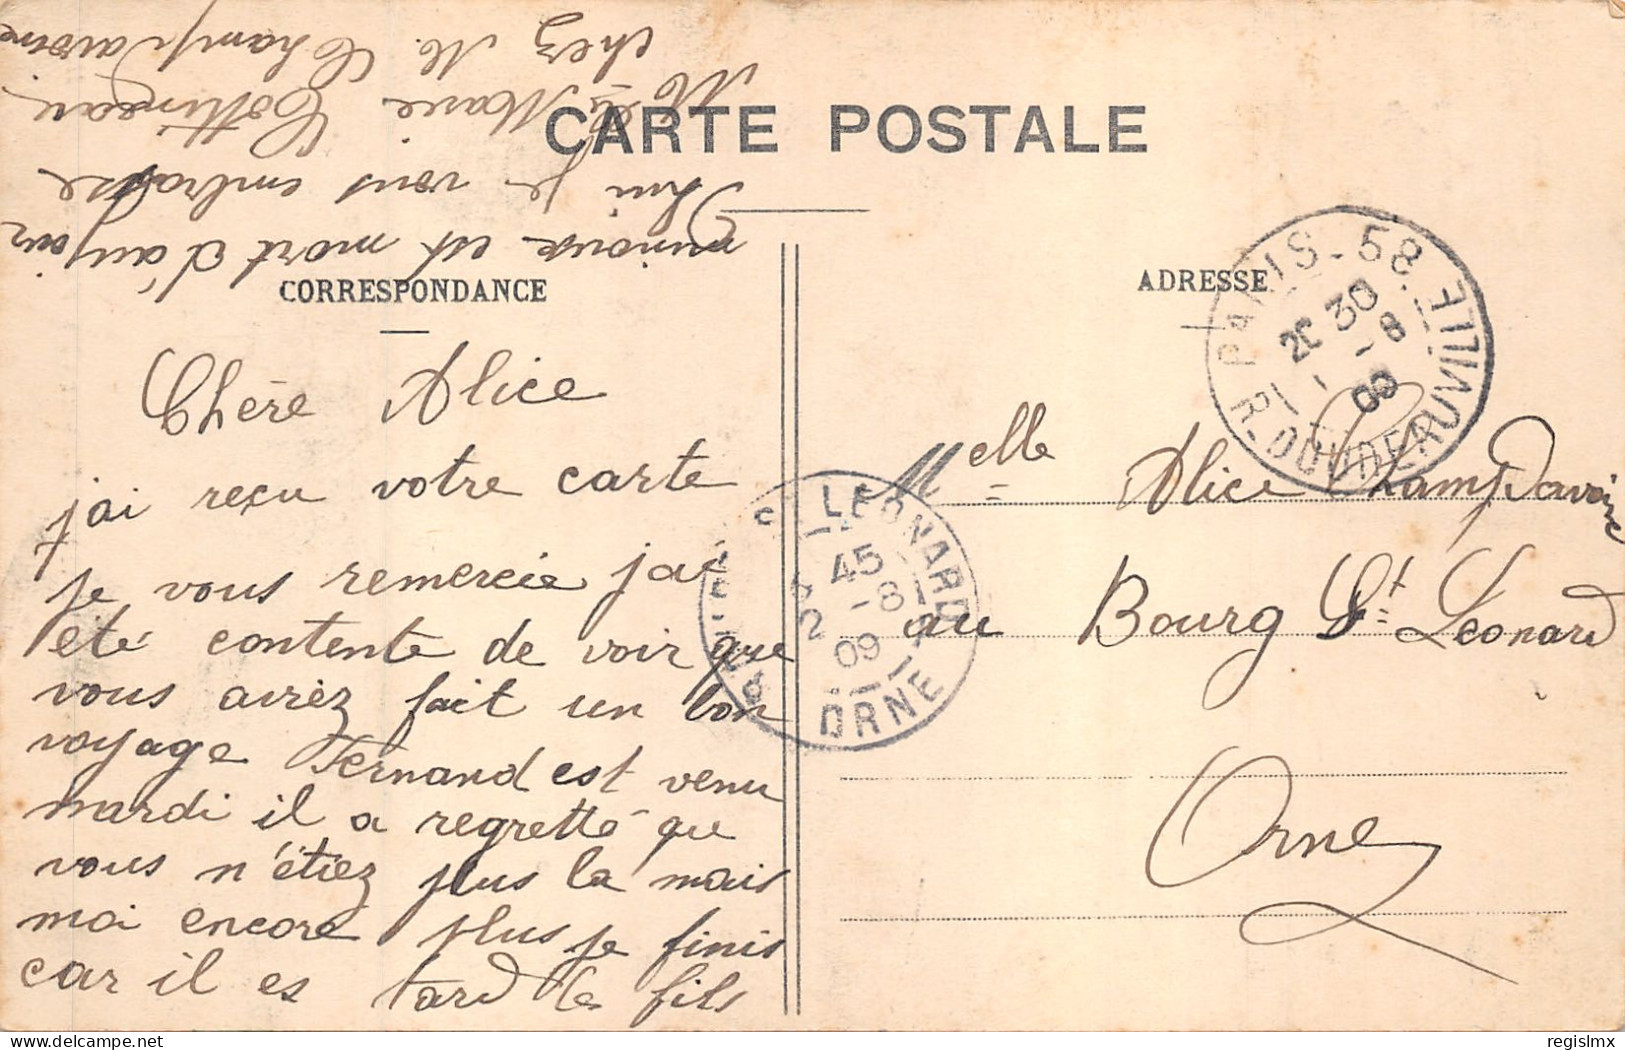 CARTE POSTALE
CORRESPONDANCE
Chère Alice
j'ai reçu votre carte
je vous remercie jai
été contente de voir que
vous avrèz fait un bon
voyage Fernand est venu
mardi il a regretté que
vous n'étiez plus la mais
moi encore plus je finis
car il es tard le fils
est mort d'aujour
dhui je vous embrasse
Marie Cottineau
chez M. Champdavoine
ADRESSE
Melle Alice Champdavoine
au Bourg St Léonard
Orne
PARIS - 58
R. DOUDEAUVILLE
30
1 - 8
09
LEONARD
45
2 - 8
09
ORNE
regislmx